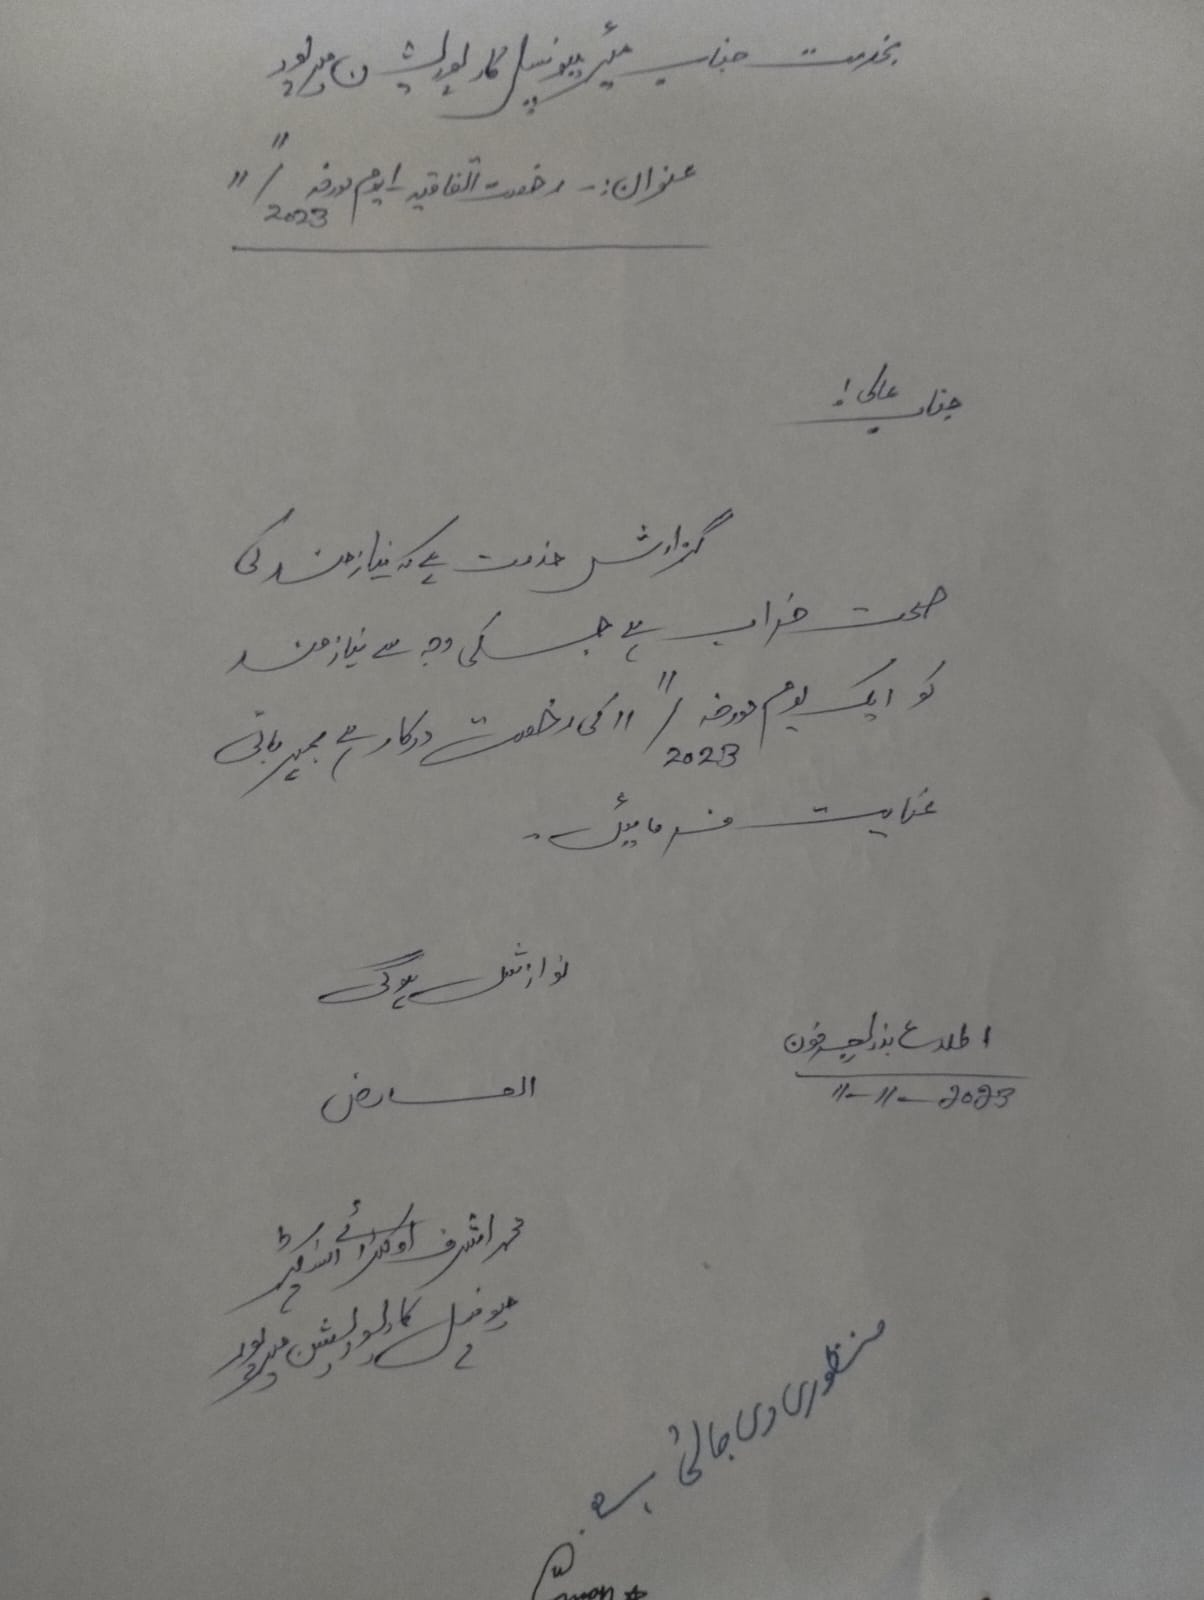 بخدمت جناب میئر میونسپل کارپوریشن میرپور
عنوان:۔ رخصت اتفاقیہ 1 یوم مورخہ 11/11/2023
جناب عالی!
گزارش خدمت ہے کہ نیازمند کی
صحت خراب ہے جسکی وجہ سے نیازمند
کو ایک یوم مورخہ 11/11/2023 کی رخصت درکار ہے مہربانی
عنایت فرمائیں۔
نوازش ہوگی
اطلاع بذریعہ فون
11-11-2023
العارض
محمد اشرف اوکٹرائے انسپکٹر
میونسپل کارپوریشن میرپور
منظوری دی جاتی ہے۔